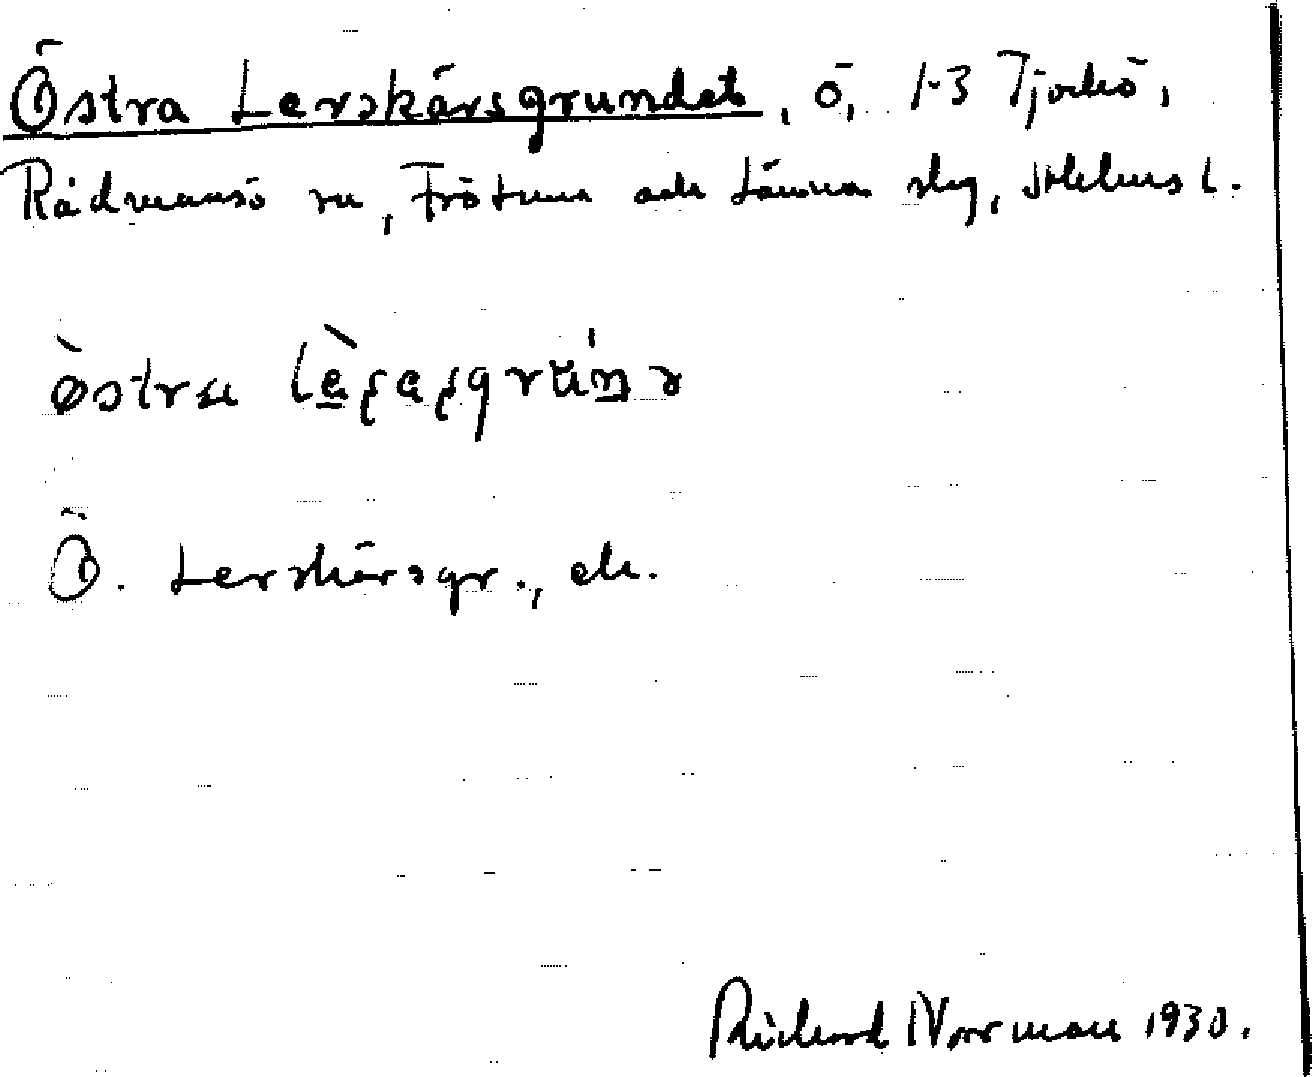 Östra Lerskärsgrundet, ö, 1-3 Tjockö,
Rådmansö sn, Frötuna och Länna slg, Sthlms l.
Ö. Lerskärsgr., ek.
Richard Norrman 1930.